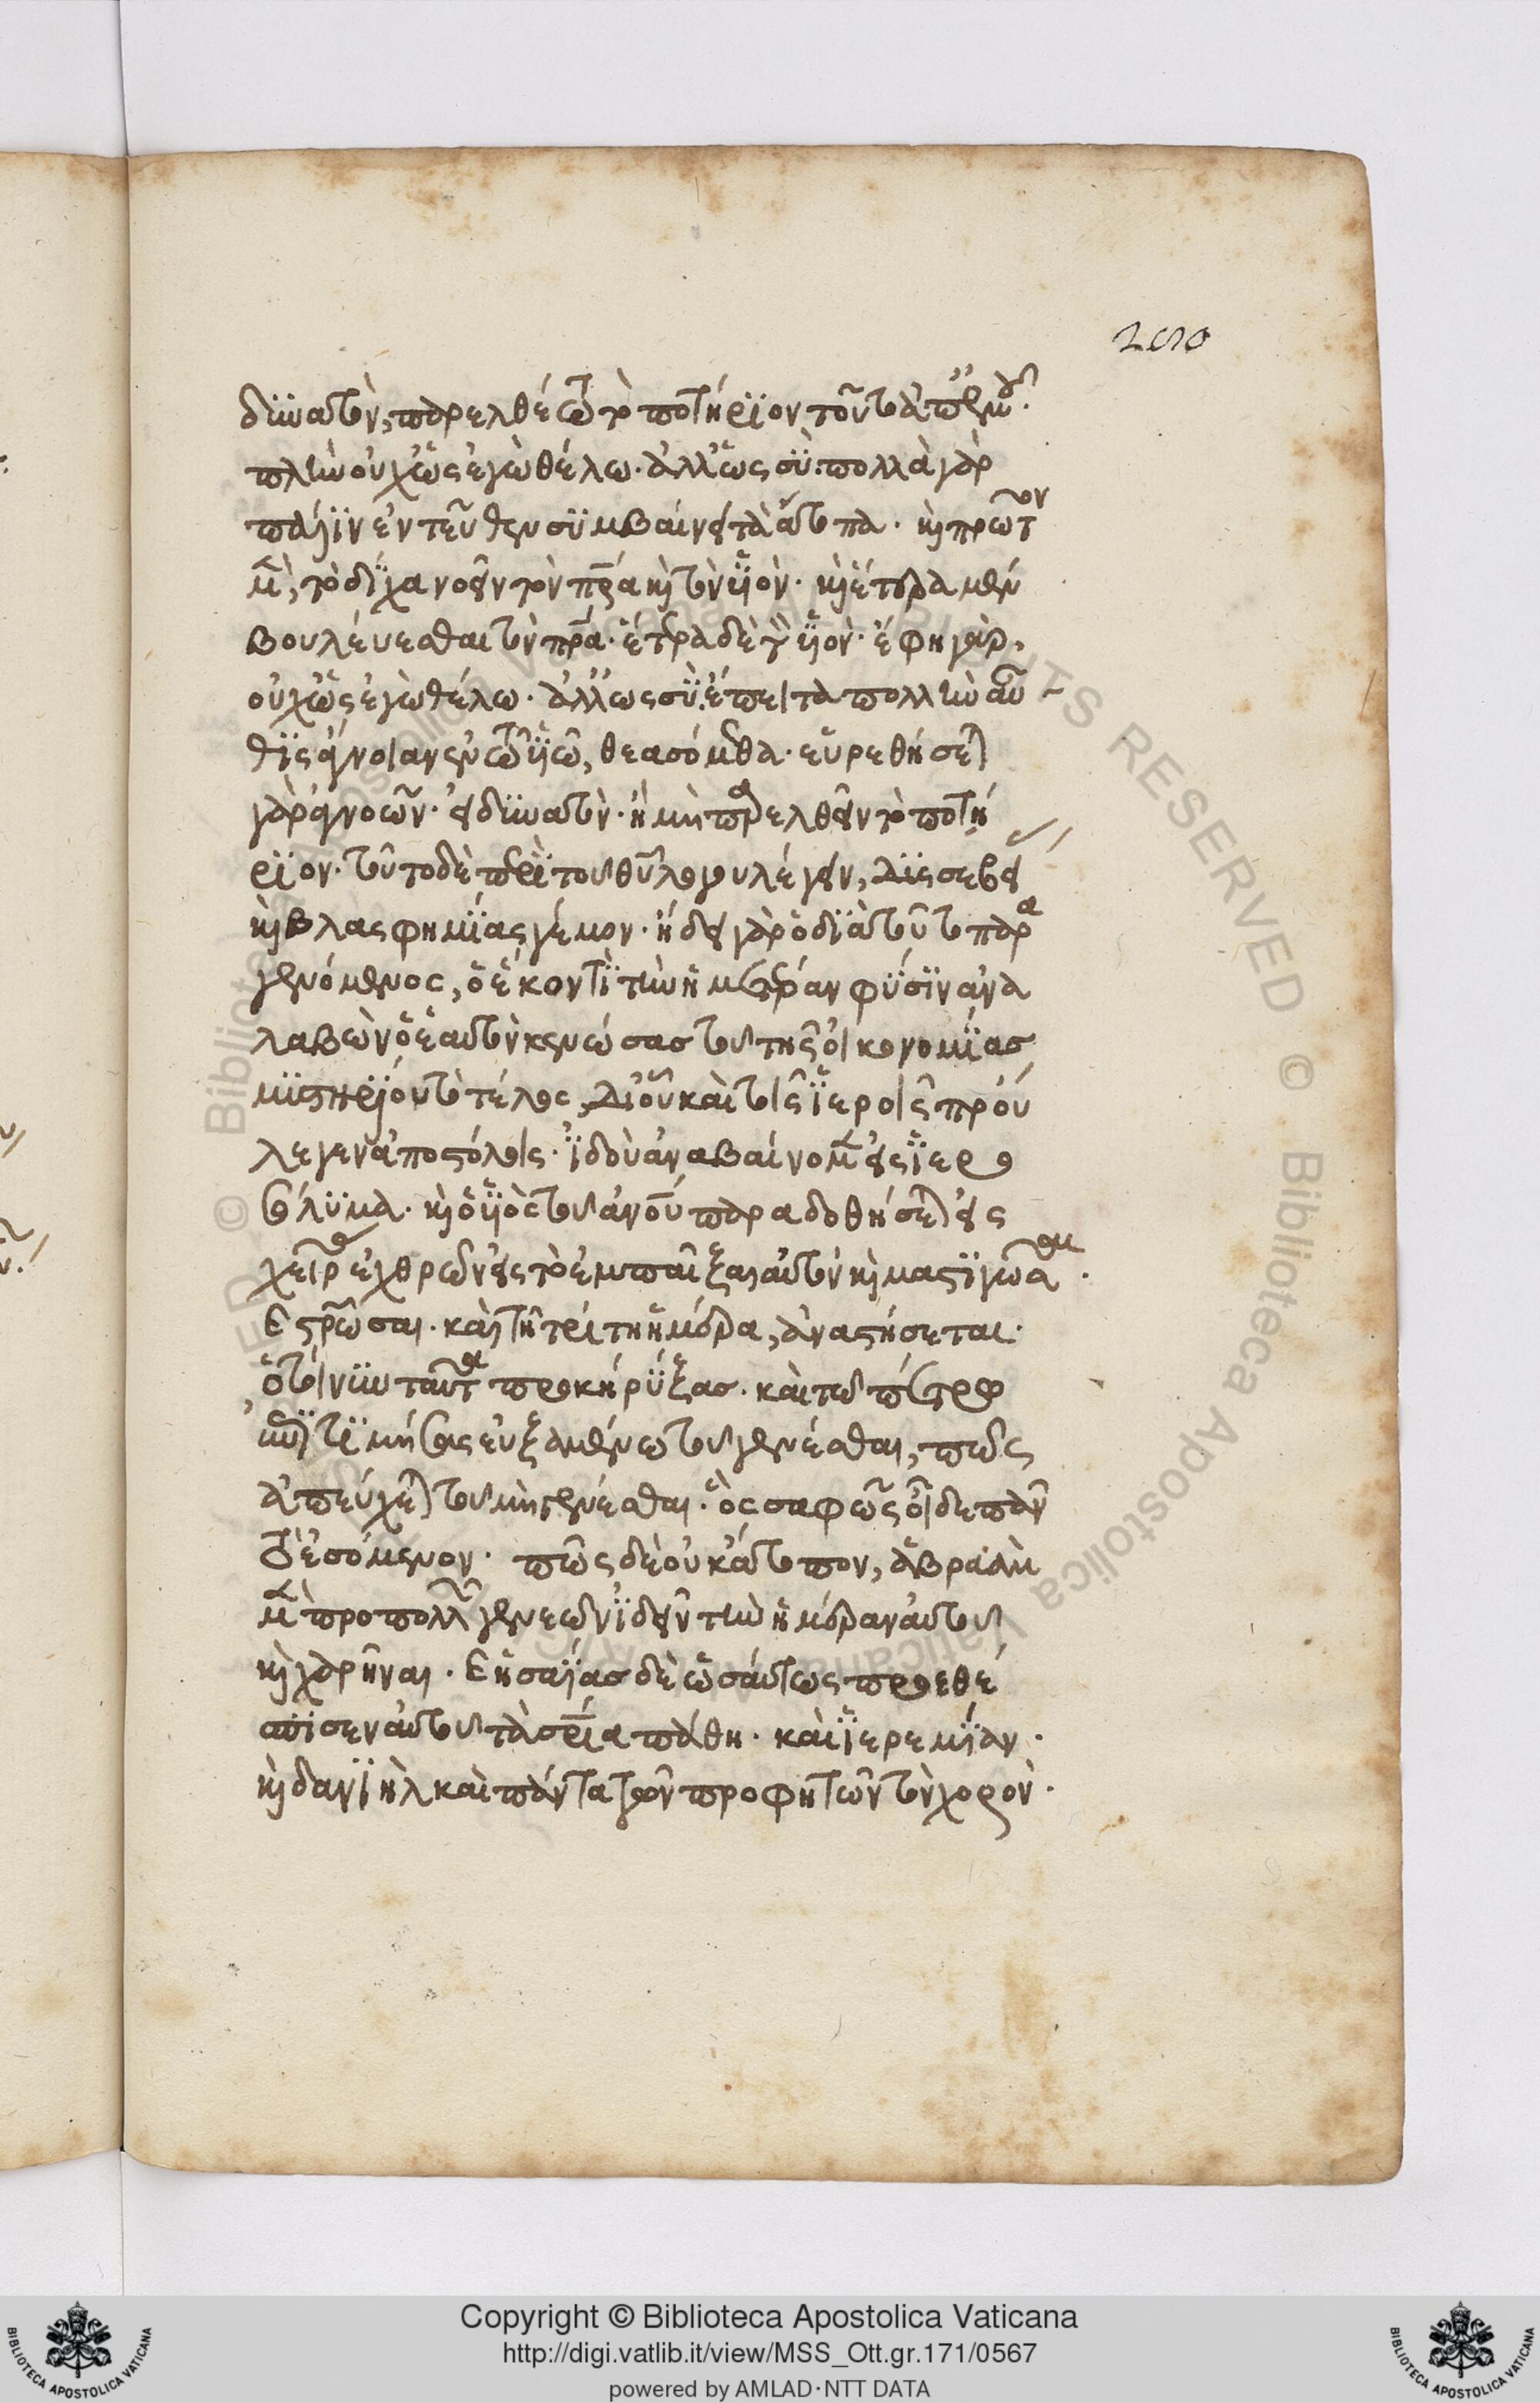 200
δυνατὸν, παρελθέτω τὸ ποτήριον τοῦτο ἀπ' ἐμοῦ·
πλὴν οὐχ ὡς ἐγὼ θέλω· ἀλλ' ὡς σύ· πολλὰ γὰρ
πάλιν ἐντεῦθεν συμβαίνει τὰ ἄτοπα· καὶ πρῶτον
μὲν, τὸ δίχα νοεῖν τὸν πρα καὶ τὸν υἱὸν· καὶ ἕτερα μὲν
βουλεύεσθαι τὸν πρα· ἕτερα δὲ τὸν υἱὸν· ἔφη γὰρ,
οὐχ ὡς ἐγὼ θέλω· ἀλλ' ὡς σύ· ἔπειτα πολλὴν αὖ
θις ἄγνοιαν ἐν τῶ υἱῶ, θεασόμεθα· εὑρεθήσεται
γὰρ ἀγνοῶν· εἰ δυνατὸν· ἢ μὴ παρελθεῖν τὸ ποτή
ριον· τοῦτο δὲ περὶ τοῦ θυ λόγου λέγειν, δυσσεβεῖ
καὶ βλασφημίας γέμον· ἤδει γὰρ ὁ διὰ τοῦτο παρα
γενόμενος, ὁ ἑκοντὶ τὴν ἡμετέραν φύσιν ἀνα
λαβὼν ὁ ἑαυτὸν κενώσας τοῦ τῆς οἰκονομίας
μυστηρίου τὸ τέλος, διὸ καὶ τοῖς ἱεροῖς πρού
λεγεν ἀποστόλοις· ἰδοὺ ἀναβαίνομεν εἰς ἱερο
σόλυμα· καὶ ὁ υἱὸς τοῦ ανου παραδοθήσεται εἰς
χεῖρας ἐχθρῶν εἰς τὸ ἐμπαῖξαι αὐτὸν καὶ μαστιγῶσαι·
καὶ στρῶσαι· καὶ τῇ τρίτῃ ἡμέρα, ἀναστήσεται·
ὁ τοίνυν ταῦτα προκηρύξας· καὶ τῶ πέτρω
ἐπιτιμήσας εὐξαμένω τοῦ γενέσθαι, πῶς
ἀπεύχεται τοῦ μὴ γενέσθαι· ὃς σαφῶς οἶδε πᾶν
τὸ ἐσόμενον· πῶς δὲ οὐκ ἄτοπον, ἀβραὰμ
μὲν πρὸ πολλῶν γενεῶν ἰδεῖν τὴν ἡμέραν αὐτοῦ
καὶ χαρῆναι· καὶ ἡσαΐας δὲ ὡσαύτως προεθέ
σπισεν αὐτοῦ τὰ σρια πάθη· καὶ ἱερεμίαν·
καὶ δανιὴλ καὶ πάντα τῶν προφητῶν τὸν χορὸν·
Copyright © Biblioteca Apostolica Vaticana
http://digi.vatlib.it/view/MSS_Ott.gr.171/0567
powered by AMLAD·NTT DATA